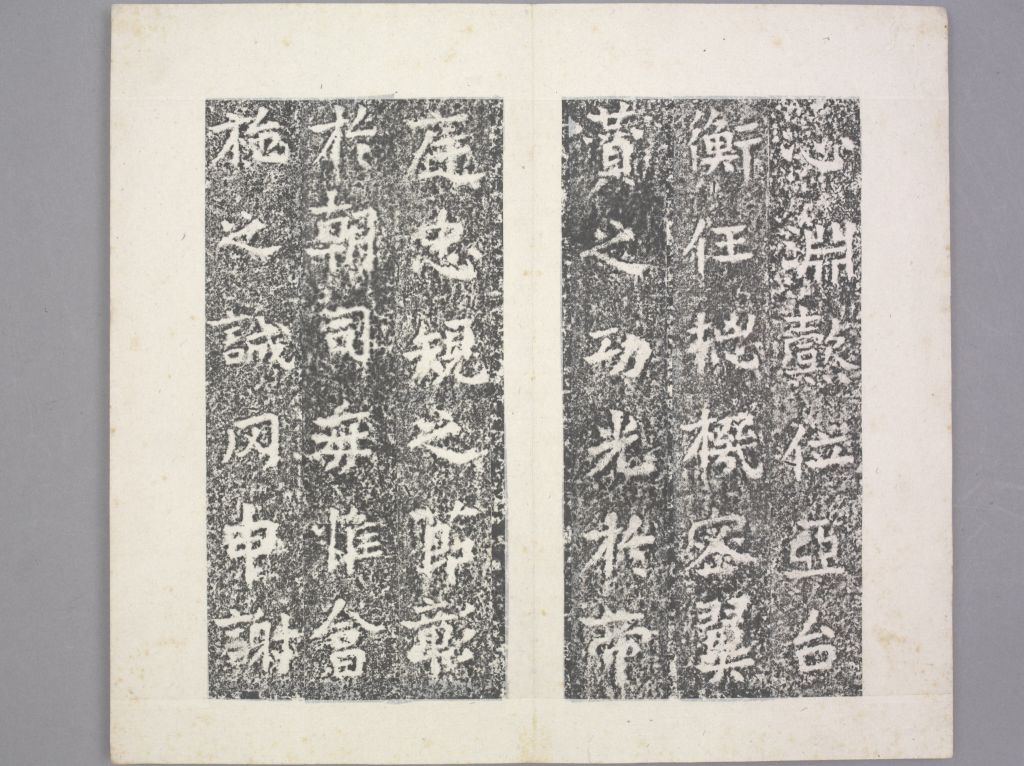 心淵懿位亞台
衡任樞機密翼
賛之功光於帝
庭忠規之節彰
於朝司毎惟會
施之誠冈申謝